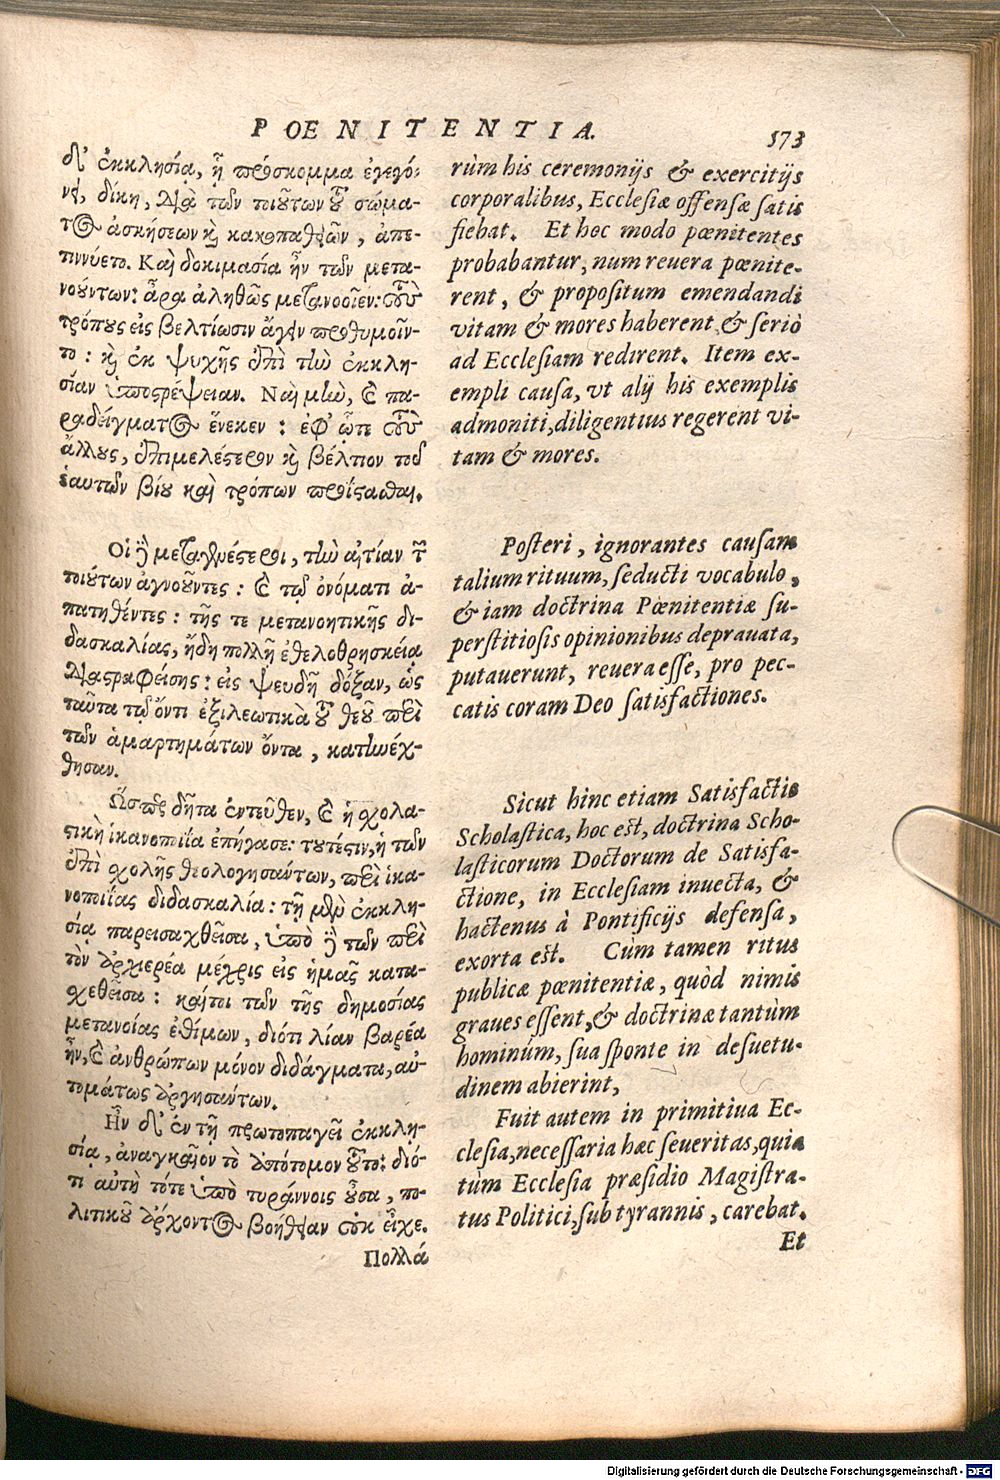 POENITENTIA.
573
δι᾽ ἐκκλησία, ᾗ πρόσκομμα ἐγεγό-
νει, δίκη, διὰ τῶν τοιούτων τοῦ σώμα-
τος ἀσκήσεων καὶ κακοπαθειῶν, ἀπε-
τιννύετο. Καὶ δοκιμασία ἦν τῶν μετα-
νούντων: ἆρα ἀληθῶς μετανοοῖεν: τοὺς
τρόπους εἰς βελτίωσιν ἄγειν προθυμοῖν-
το: καὶ ἐκ ψυχῆς ἐπὶ τὴν ἐκκλη-
σίαν ὑποστρέψειαν. Ναὶ μὴν, καὶ πα-
ραδείγματος ἕνεκεν: ἐφ᾽ ᾧτε τοὺς
ἄλλους, ἐπιμελέστερον καὶ βέλτιον τοῦ
ἑαυτῶν βίου καὶ τρόπων προΐστασθαι.
Οἱ δὲ μεταγενέστεροι, τὴν αἰτίαν τῶν
τοιούτων ἀγνοοῦντες: καὶ τῷ ὀνόματι ἀ-
πατηθέντες: τῆς τε μετανοητικῆς δι-
δασκαλίας, ἤδη πολλῇ ἐθελοθρησκείᾳ
διαστραφείσης: εἰς ψευδῆ δόξαν, ὡς
ταῦτα τῷ ὄντι ἐξιλεωτικὰ τοῦ θεοῦ περὶ
τῶν ἁμαρτημάτων ὄντα, κατηνέχ-
θησαν.
Ὥσπερ δῆτα ἐντεῦθεν, καὶ ἡ σχολα-
στικὴ ἱκανοποιΐα ἐπήγασε: τουτέστιν, ἡ τῶν
ἐπὶ σχολῆς θεολογησάντων, περὶ ἱκα-
νοποιΐας διδασκαλία: τῇ μὲν ἐκκλη-
σίᾳ παρεισαχθεῖσα, ὑπὸ δὲ τῶν περὶ
τὸν ἀρχιερέα μέχρις εἰς ἡμᾶς κατα-
σχεθεῖσα: καίτοι τῶν τῆς δημοσίας
μετανοίας ἐθίμων, διότι λίαν βαρέα
ἦν, καὶ ἀνθρώπων μόνον διδάγματα, αὐ-
τομάτως ἀργησάντων.
Ἦν δ᾽ ἐν τῇ πρωτοπαγεῖ ἐκκλη-
σίᾳ, ἀναγκαῖον τὸ ἀπότομον τοῦτο: διό-
τι αὐτὴ τότε ὑπὸ τυράννοις οὖσα, πο-
λιτικοῦ ἄρχοντος βοήθειαν οὐκ εἶχε.
Πολλά
rùm his ceremonijs & exercitijs
corporalibus, Ecclesiæ offensæ satis
fiebat. Et hoc modo pœnitentes
probabantur, num reuera pœnite-
rent, & propositum emendandi
vitam & mores haberent, & seriò
ad Ecclesiam redirent. Item ex-
empli causa, vt alij his exemplis
admoniti, diligentius regerent vi-
tam & mores.
Posteri, ignorantes causam
talium rituum, seducti vocabulo,
& iam doctrina Pœnitentiæ su-
perstitiosis opinionibus deprauata,
putauerunt, reuera esse, pro pec-
catis coram Deo satisfactiones.
Sicut hinc etiam Satisfactio
Scholastica, hoc est, doctrina Scho-
lasticorum Doctorum de Satisfa-
ctione, in Ecclesiam inuecta, &
hactenus à Pontificijs defensa,
exorta est. Cùm tamen ritus
publicæ pœnitentiæ, quòd nimis
graues essent, & doctrinæ tantùm
hominùm, sua sponte in desuetu-
dinem abierint,
Fuit autem in primitiua Ec-
clesia, necessaria hæc seueritas, quia
tùm Ecclesia præsidio Magistra-
tus Politici, sub tyrannis, carebat.
Et
Digitalisierung gefördert durch die Deutsche Forschungsgemeinschaft - DFG